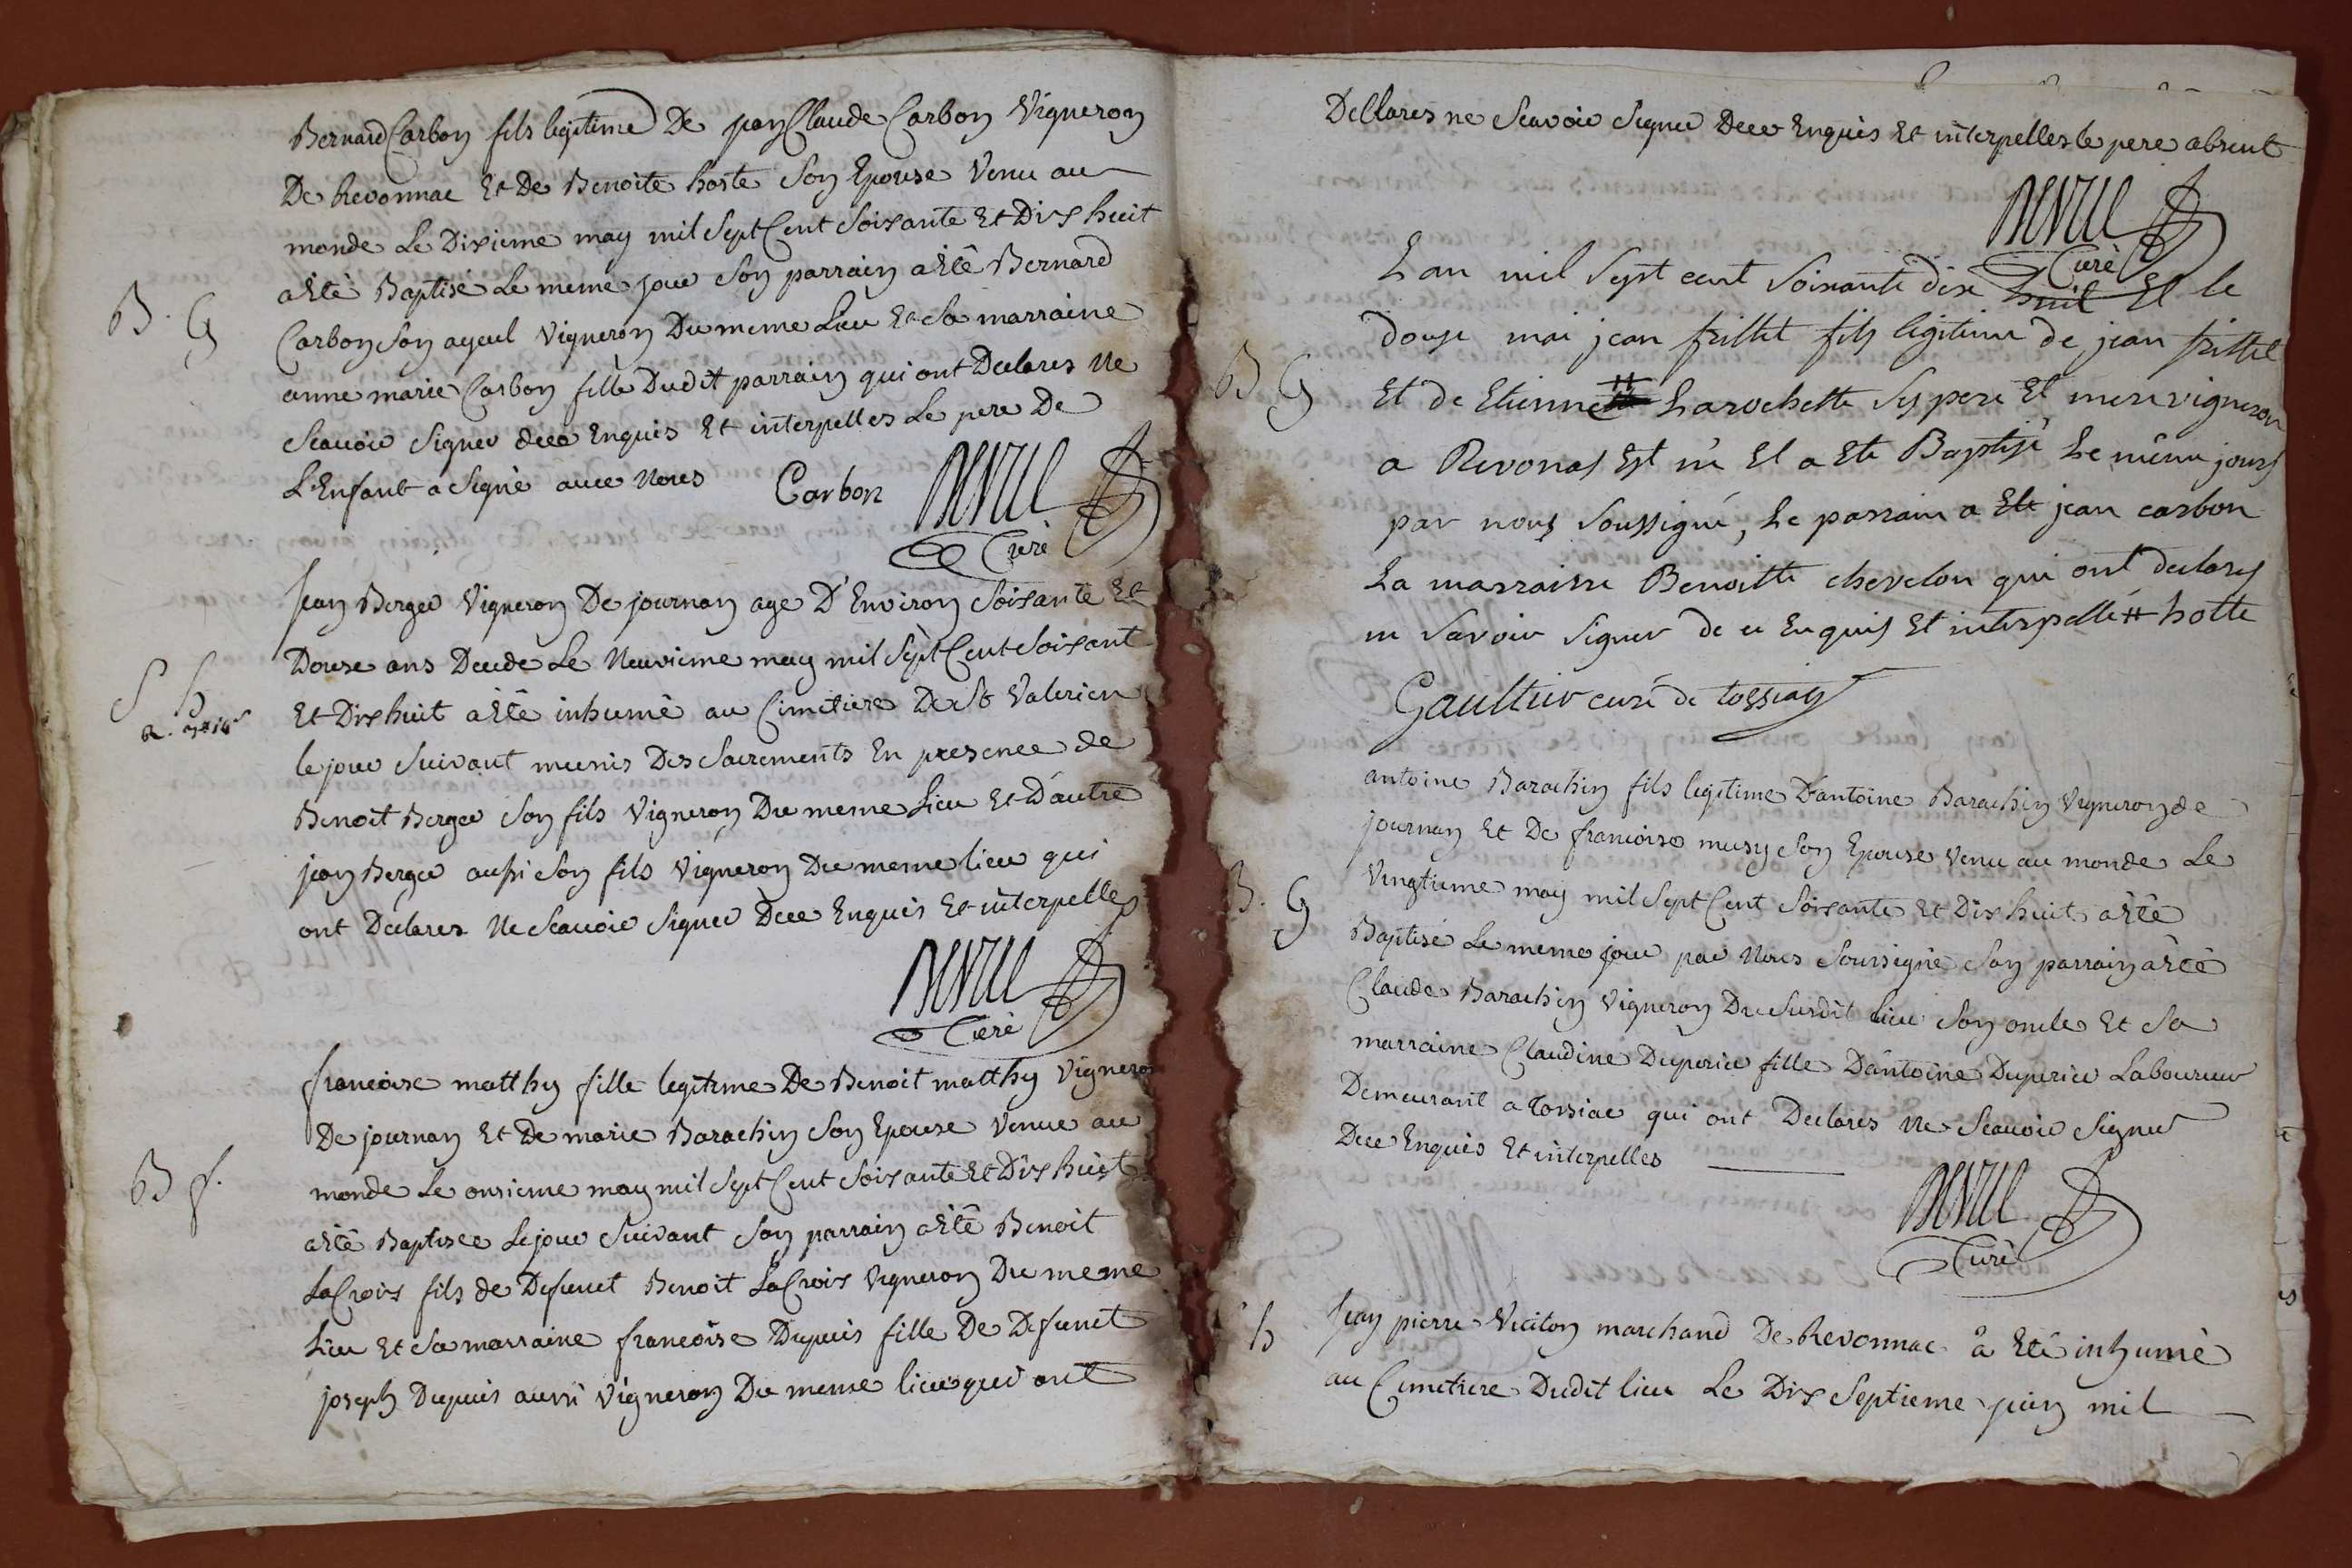 Bernard Carbon fils legitime De jean Claude Carbon Vigneron
De Revonnac Et De Benoite hoste Son Epouse Venu au
monde Le Dixieme may mil Sept Cent Soisante Et Dix huit
B. G
a Eté Baptisé Le meme jour Son parrain a Eté Bernard
Carbon Son ayeul Vigneron Du meme Lieu Et Sa marraine
anne marie Carbon fille Dudit parrain qui ont Declares Ne
Scavoir Signer dece Enquis Et interpelles Le pere De
L'Enfant a Signé avec Nous Carbon
Curé
Jean Berger Vigneron De journan age D'Environ Soisante Et
Douse ans Decede Le Neuvieme may mil Sept Cent Soisant
S h
Et Dix huit a Eté inhumé au Cimetiere De St Valerien
le jour Suivant munis Des Sacrements En presence de
Benoit Berger Son fils Vigneron Du meme Lieu Et D'autre
jean Berger aussi Son fils Vigneron Du meme lieu qui
ont Declares Ne Scavoir Signer Dece Enquis Et interpelles
Curé
francoise matthy fille legitime De Benoit matthy Vigneron
De journan Et De marie Barachin Son Epouse Venue au
B f.
monde Le onsieme may mil Sept Cent Soisante Et Dix huit
a Eté Baptisee Le jour Suivant Son parrain a Eté Benoit
LaCroix fils de Defunct Benoit LaCroix Vigneron Du meme
Lieu Et Sa marraine francoise Dupuis fille De Defunct
joseph Dupuis aussi Vigneron Du meme lieu qui ont
Declares ne Scavoir Signer Dece Enquis Et interpelles le pere absent
Curé
L'an mil Sept cent Soixante dix huit Et le
douze mai jean frillet fils legitime de jean frillet
B G
Et de Etienne # Larochette Ses pere Et mere vigneron
a Revonas Est né Et a Eté Baptisé Le même jours
par nous Soussigné, Le parrain a Eté jean carbon
La marraine Benoitte chevelon qui ont declares
ne Savoir Signer de ce Enquis Et interpellé # hotte
Gaultier curé de tossiay
antoine Barachin fils legitime D'antoine Barachin Vigneron de
journan Et De francoise musy Son Epouse Venu au monde Le
B. G
Vingtieme may mil Sept Cent Soisante Et Dix huit a Eté
Baptisé Le meme jour par Nous Soussigné Son parrain a Eté
Claude Barachin Vigneron Du Susdit lieu Son oncle Et Sa
marraine Claudine Duperier fille D'antoine Duperier Laboureur
Demeurant a Tossiac qui ont Declares Ne Scavoir Signer
Dece Enquis Et interpelles
Curé
h
Jean pierre Veciton marchand De Revonnac a Eté inhumé
au Cimetiere Dudit lieu Le Dix Septieme juin mil